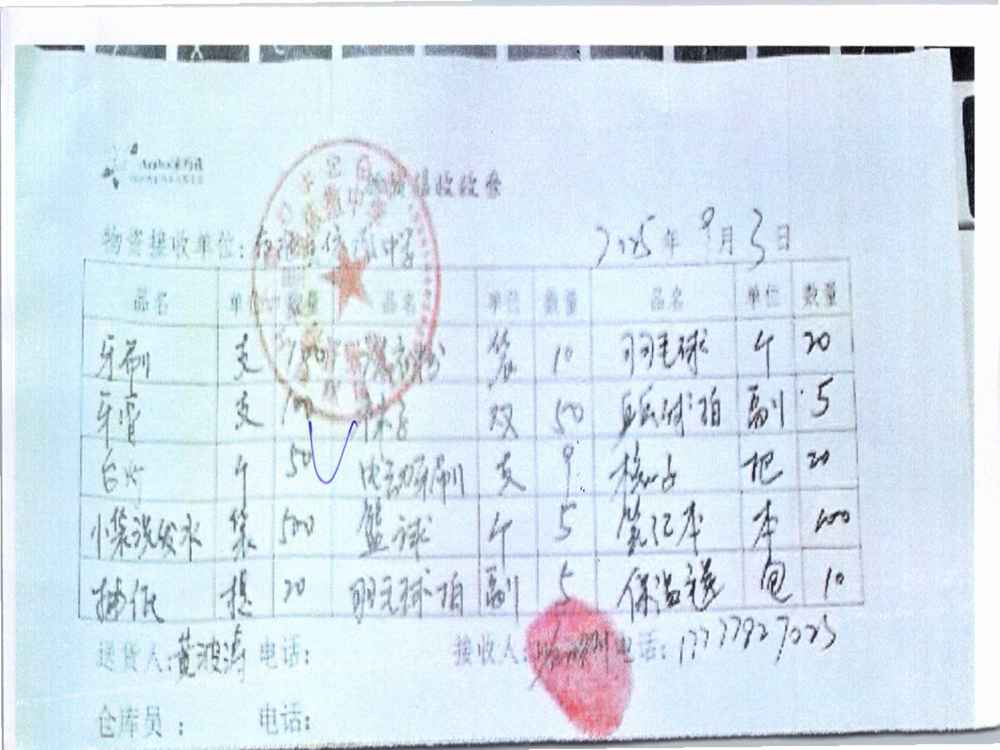 物资接收收条
物资接收单位: 中学 2025年9月3日
品名 单位 数量 品名 单位 数量 品名 单位 数量
牙刷 支 洗衣粉 袋 10 羽毛球 个 20
牙膏 支 袜子 双 50 乒乓球拍 副 5
台灯 个 50 电动牙刷 支 9 梳子 把 20
小袋洗发水 袋 500 篮球 个 5 笔记本 本 100
抽纸 提 20 羽毛球拍 副 5 包 10
送货人:黄波涛 电话: 接收人: 电话:
仓库员: 电话: